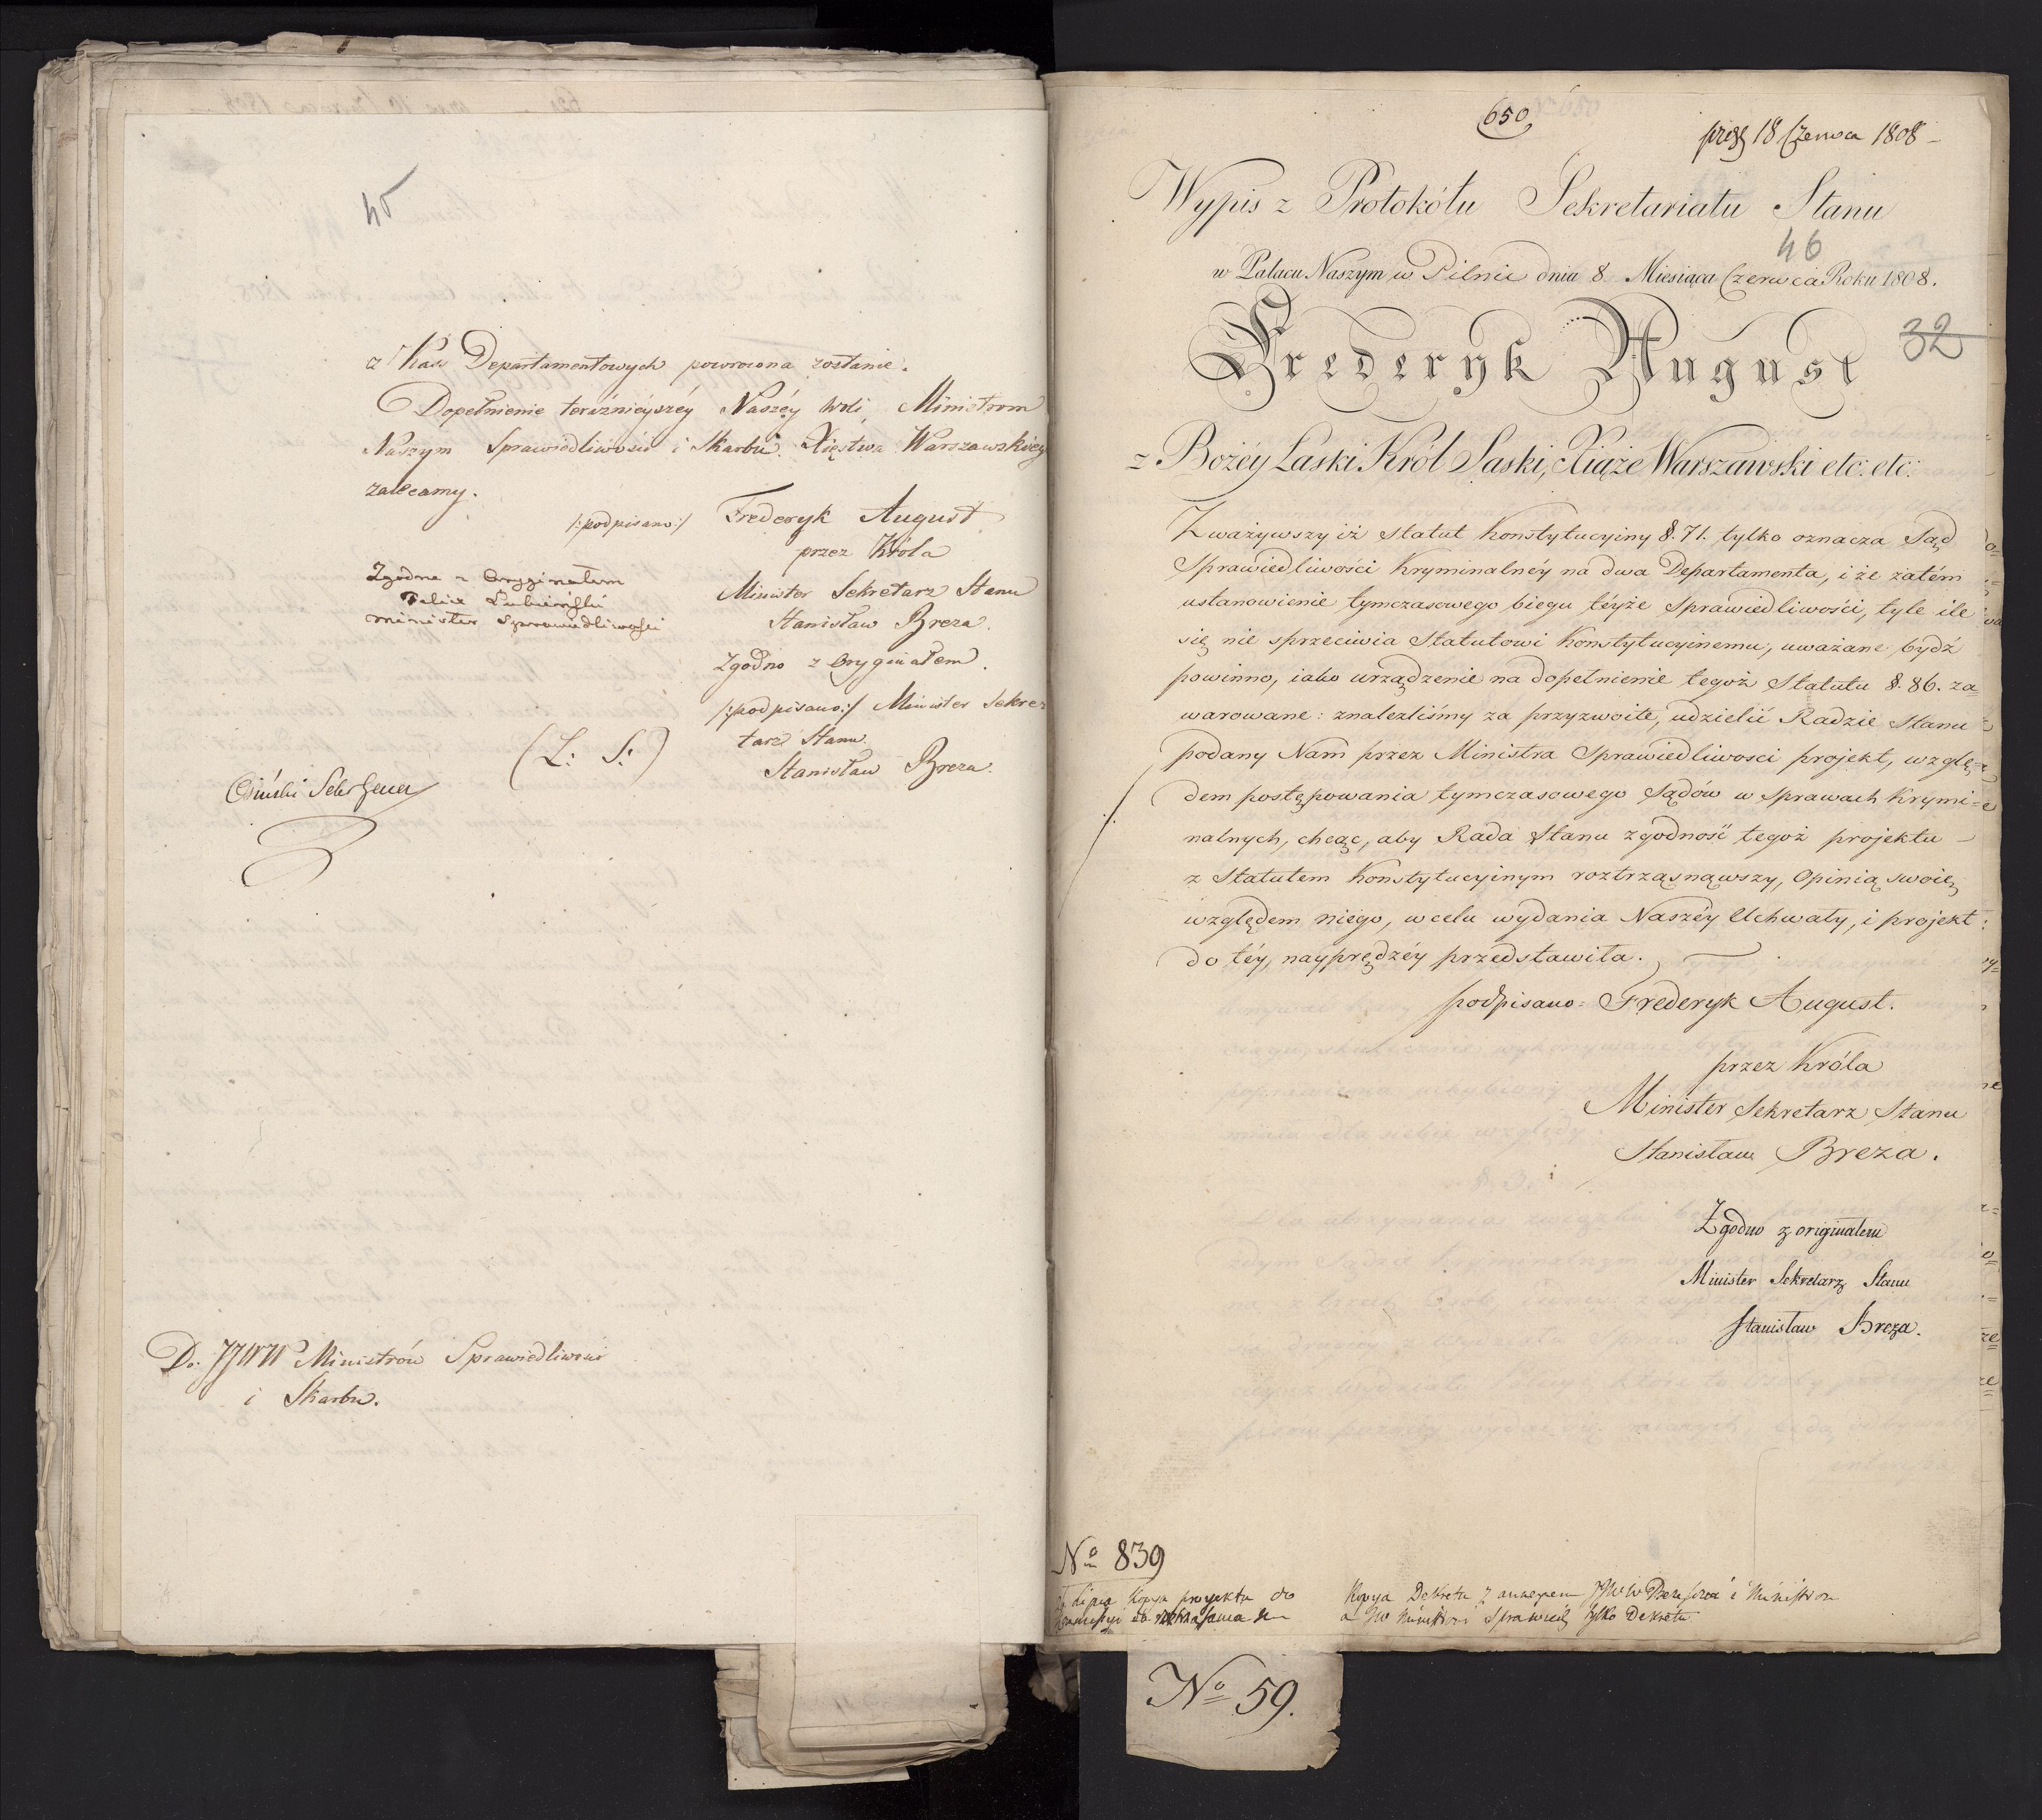 45
z Kass Departamentowych powrocona zostanie.
Dopełnienie teraźnieyszéy Naszéy woli Ministrom
Naszym Sprawiedliwości i Skarbu Xięstwa Warszawskieg
zalecamy.
/:podpisano:/ Frederyk August
przez Króla
Minister Sekretarz Stanu
Stanisław Breza.
Zgodno z Oryginałem
Felix Lubieński
Minister Sprawiedliwości
Zgodno z Oryginałem.
/:podpisano:/ Minister Sekre
tarz Stanu
(L: S:)
Stanisław Breza.
Osiński Sekr Gener
Do JJWW Ministrów Sprawiedliwości
i Skarbu.
650
prez 18 Czerwca 1808
Wypis z Protokółu Sekretariatu Stanu
46
w Pałacu Naszym w Pilnic dnia 8 Miesiąca Czerwca Roku 1808.
Frederyk August
32
z Bożéy Łaski Król Saski, Xiąże Warszawski etc: etc:
Zważywszy iż Statut Konstytucyiny §. 71. tylko oznacza Sąd
Sprawiedliwości Kryminalnéy na dwa Departamenta, i że zatém
ustanowienie tymczasowego biegu téyże Sprawiedliwości, tyle ile
się nie sprzeciwia Statutowi Konstytucyinemu, uważane bydź
powinno, iako urządzenie na dopełnienie tegoż Statutu §. 86. za=
warowane: znaleźliśmy za przyzwoite, udzielić Radzie Stanu
podany Nam przez Ministra Sprawiedliwosci projekt, wzglę=
dem postępowania tymczasowego Sądów w Sprawach Krymi=
nalnych, chcąc, aby Rada Stanu zgodność tegoż projektu
z Statutem Konstytucyinym roztrząsnąwszy, Opinią swoię
względem niego, w celu wydania Naszéy Uchwały, i projekt
do téy, nayprędzéy przedstawiła.
podpisano= Frederyk August.
przez Króla
Minister Sekretarz Stanu
Stanisław Breza.
Zgodno z originałem
Minister Sekretarz Stanu
Stanisław Breza.
No 839
Kopya projektu do
Kopya Dekretu z anexem i Ministrom
a JW Ministrowi Sprawiedl tylko Dekretu
No 59.